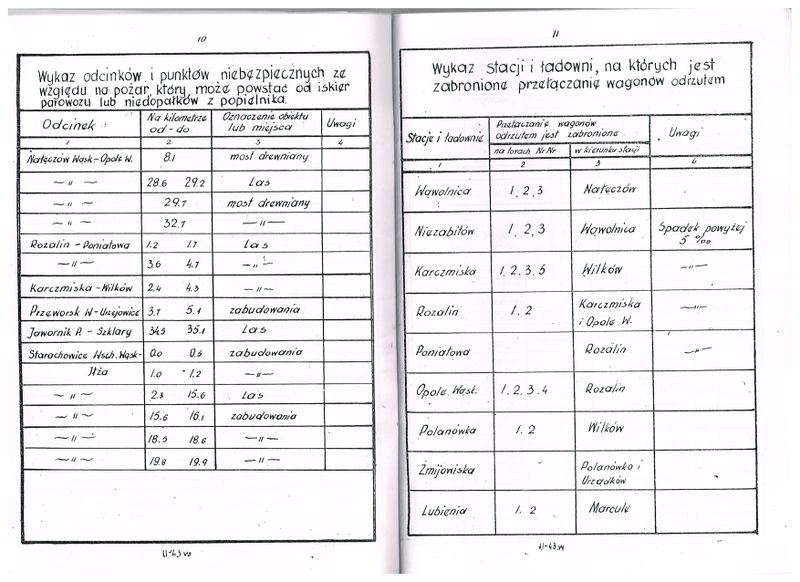 10
Wykaz odcinków i punktów niebezpiecznych ze
względu na pożar, który może powstać od iskier
parowozu lub niedopałków z popielnika.
Odcinek Na kilometrze od-do Oznaczenie obiektu lub miejsca Uwagi
1 2 3 4
Nałęczów Wąsk-Opole W. 8.1 most drewniany
—"— 28.6 29.2 Las
—"— 29.7 most drewniany
—"— 32.7 —"—
Rozalin-Poniatowa 1.2 1.7 Las
—"— 3.6 4.7 —"—
Karczmiska-Wilków 2.4 4.3 —"—
Przeworsk W-Urzejowice 3.7 5.1 zabudowania
Jawornik P. - Szklary 34.5 35.1 Las
Starachowice Wsch. Wąsk- 0.0 0.5 zabudowania
Iłża 1.0 1.2 —"—
—"— 2.3 15.6 Las
—"— 15.6 16.1 zabudowania
—"— 18.5 18.6 —"—
—"— 19.8 19.9 —"—
11
Wykaz stacji i ładowni, na których jest
zabronione przetaczanie wagonów odrzutem
Stacje i ładownie Przetaczanie wagonów odrzutem jest zabronione Uwagi
na torach Nr Nr w kierunku stacji
1 2 3 4
Wąwolnica 1, 2, 3 Nałęczów
Niezabitów 1, 2, 3 Wąwolnica Spadek powyżej 5 ‰
Karczmiska 1, 2, 3, 5 Wilków —"—
Rozalin 1. 2 Karczmiska i Opole W. —"—
Poniatowa Rozalin —"—
Opole Wąsk. 1. 2. 3. 4 Rozalin
Polanówka 1. 2 Wilków
Żmijowiska Polanówka i Urządków
Lubienia 1. 2 Marcule